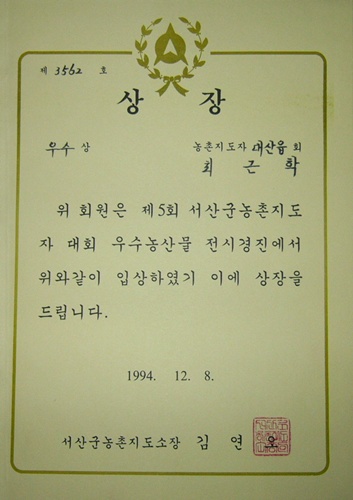 제 3562 호
상 장
우수 상
농촌지도자 대산읍 회
최 근 학
위 회원은 제5회 서산군농촌지도
자 대회 우수농산물 전시경진에서
위와같이 입상하였기 이에 상장을
드립니다.
1994. 12. 8.
서산군농촌지도소장 김 연 호